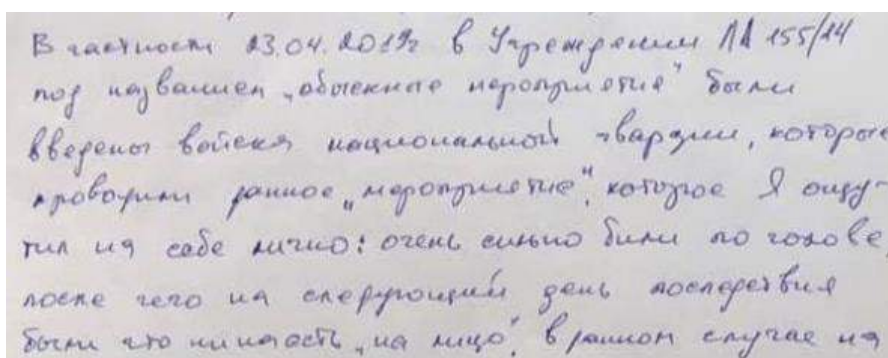 В частности 23.04.2019г в Учреждении ЛА 155/14
под названием „обыскные мероприятие" были
введены войска национальной гвардии, которые
проводили данное „мероприятие", которое Я ощу-
тил на себе лично: очень сильно били по голове,
после чего на следующий день последствия
были что ни на есть „на лицо", в данном случае на